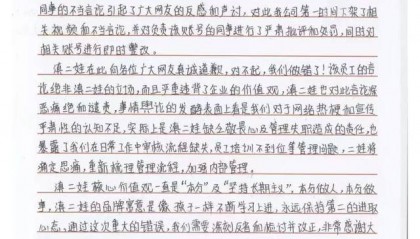 同事的不当言论引起了广大网友的反感和声讨,对此我公司第一时间下架了相
关视频和不当言论,并对负责该账号的同事进行了严肃批评和处罚,同时对
相关账号进行即时整改。
滇二娃在此向各位广大网友真诚道歉,对不起,我们做错了!该员工的言
论绝非滇二娃的立场,而且严重违背了企业的价值观,滇二娃也对此言论深
恶痛绝和谴责,事情舆论的发酵表面上看是我们对于网络热梗和宣传
严肃性的认知不足,实际上是滇二娃缺乏敬畏心及管理失职造成的责任,也
暴露了我们在日常工作中审核流程缺失,员工培训不到位等管理问题,二娃将
痛定思痛,重新梳理管理流程,加强内部管理。
滇二娃核心价值观一直是“本分”及“坚持长期主义”,本分做人,本分做
事,滇二娃的品牌寓意是像孩子一样不断学习上进,永远保持第二的进取
心态,通过这次重大的错误,我们需要深刻反省和检讨并改正,非常感谢大